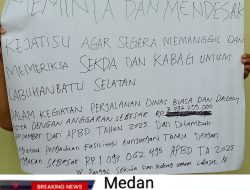 MEMINTA DAN MENDESAK
KEJATISU AGAR SEGERA MEMANGGIL DAN
MEMERIKSA SEKDA DAN KABAG UMUM
LABUHANBATU SELATAN.
DALAM KEGIATAN PERJALANAN DINAS BIASA DAN DALAM
KOTA DENGAN ANGGARAN SEBESAR RP
DARI APBD TAHUN 2025 DAN DITAMBAH
FASILITAS KUNJUNGAN TAMU DENGAN
SEBESAR RP 1.093.062.495 APBD TA 2025
SEKDA DAN KABAG UMUM LABUSEL
BREAKING NEWS
Medan